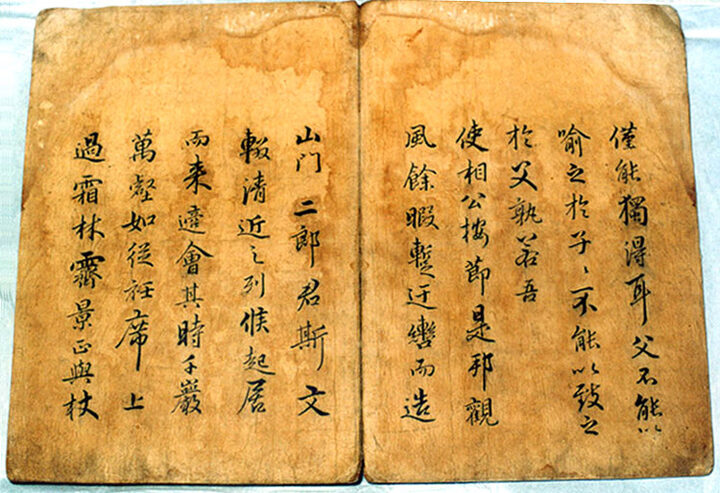 僅能獨得耳父不能以
喻之於子〻不能以致之
於父孰若吾
使相公按節是邦觀
風餘暇暫迂轡而造
山门二郎君斯文
輟清近之列候起居
而来適會其時千巖
萬壑如從衽席上
過霜林霽景正與杖